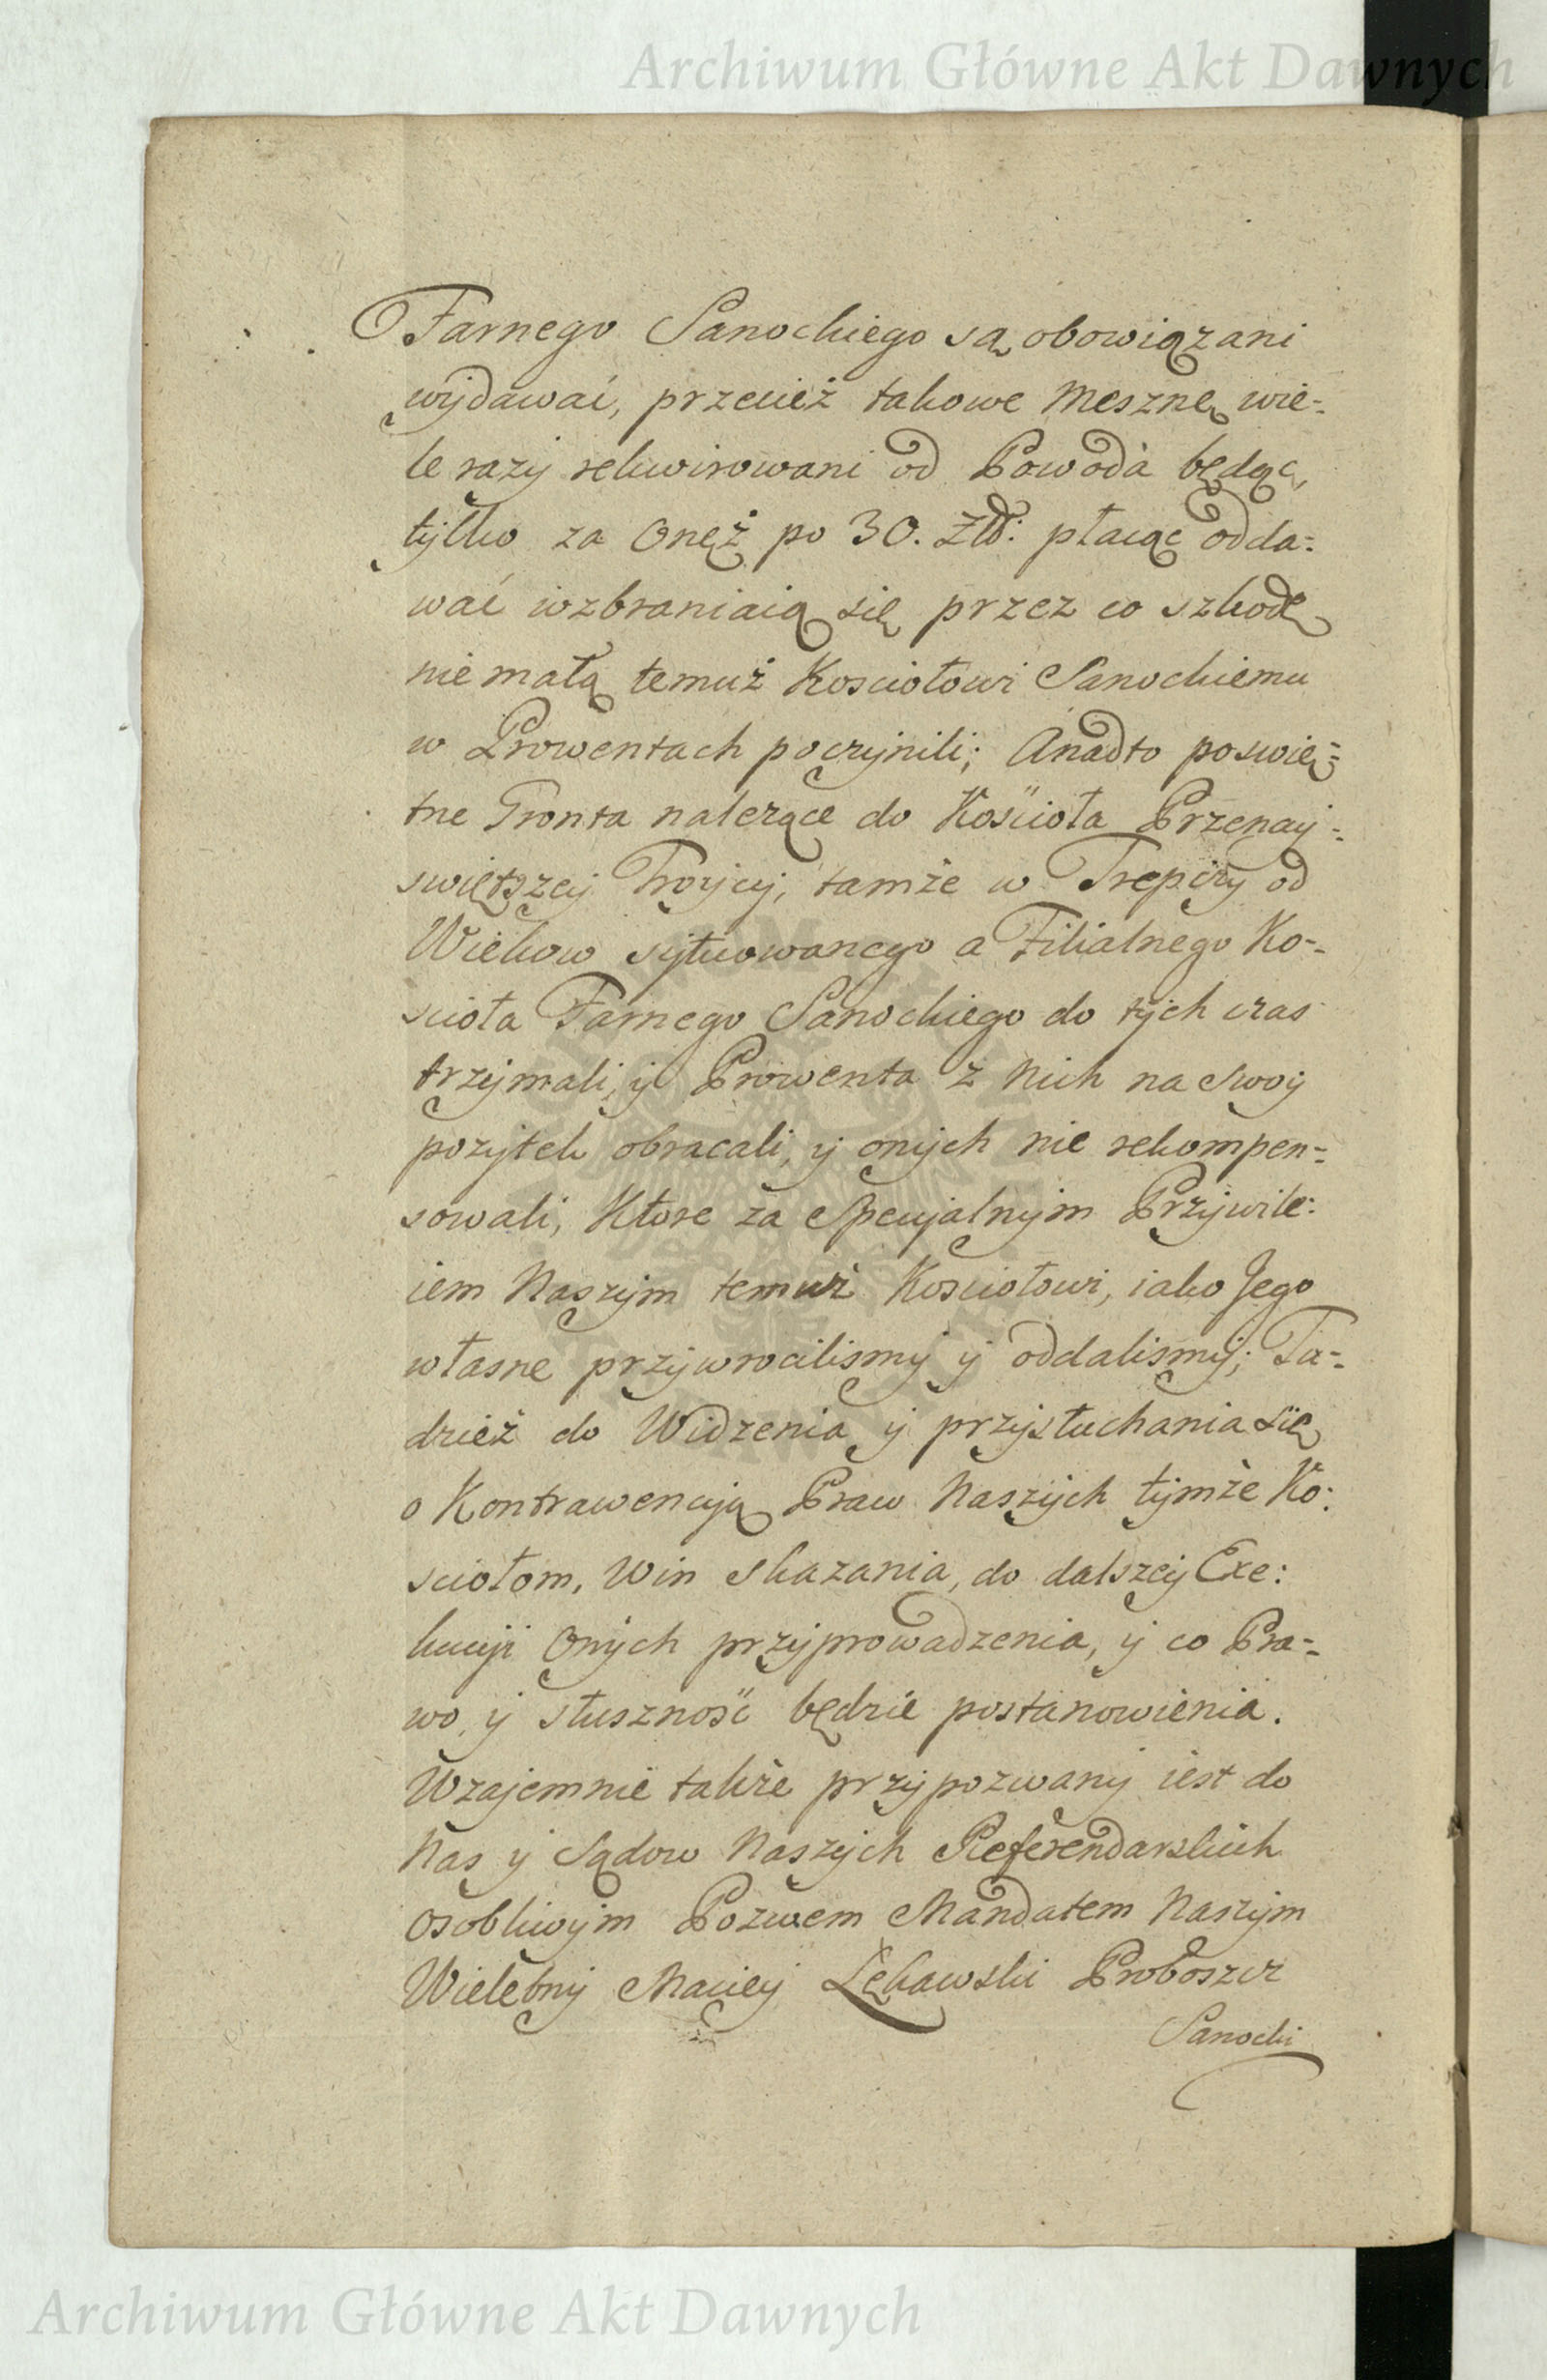 Archiwum Główne Akt Dawnych
Farnego Sanockiego są obowiązani
wÿdawać, przecież takowe Meszne, wie-
le razÿ rekwirowani od Powoda będąc,
tÿlko za Onęż po 30. Zł: płacąc odda-
wać wzbraniaią się przez co szkodę
nie małą temuż Kosciołowi Sanockiemu
w Prowentach poczÿnili; Anadto poswię-
tne Gronta należące do Kościoła Przenaÿ-
swiętszeÿ Troÿcÿ, tamże w Trepczÿ od
Wiekow sÿtuowanego a Filialnego Ko-
scioła Farnego Sanockiego do tÿch czas
trzÿmali, ÿ Prowenta z nich na swoÿ
pozÿtek obracali, ÿ onÿch nie rekompen-
sowali, Ktore za specÿalnÿm Przÿwile:
iem Naszÿm temuż Kosciołowi, iako Jego
własne przÿwrocilismÿ ÿ oddalismÿ; Ta-
dzież do Widzenia ÿ przÿsłuchania się
o Kontrawencÿą Praw Naszÿch tÿmże Ko:
sciołom, Win skazania, do dalszeÿ Exe:
kucÿi Onÿch przÿprowadzenia, ÿ co Pra-
wo, ÿ słuszność będzie postanowienia.
Wzajemnie także przÿpozwanÿ iest do
Nas ÿ Sądow Naszÿch Referendarskich
osobliwÿm Pozwem Mandatem Naszÿm
Wielebnÿ Macieÿ Lękawski Proboszcz
Sanocki
Archiwum Główne Akt Dawnych